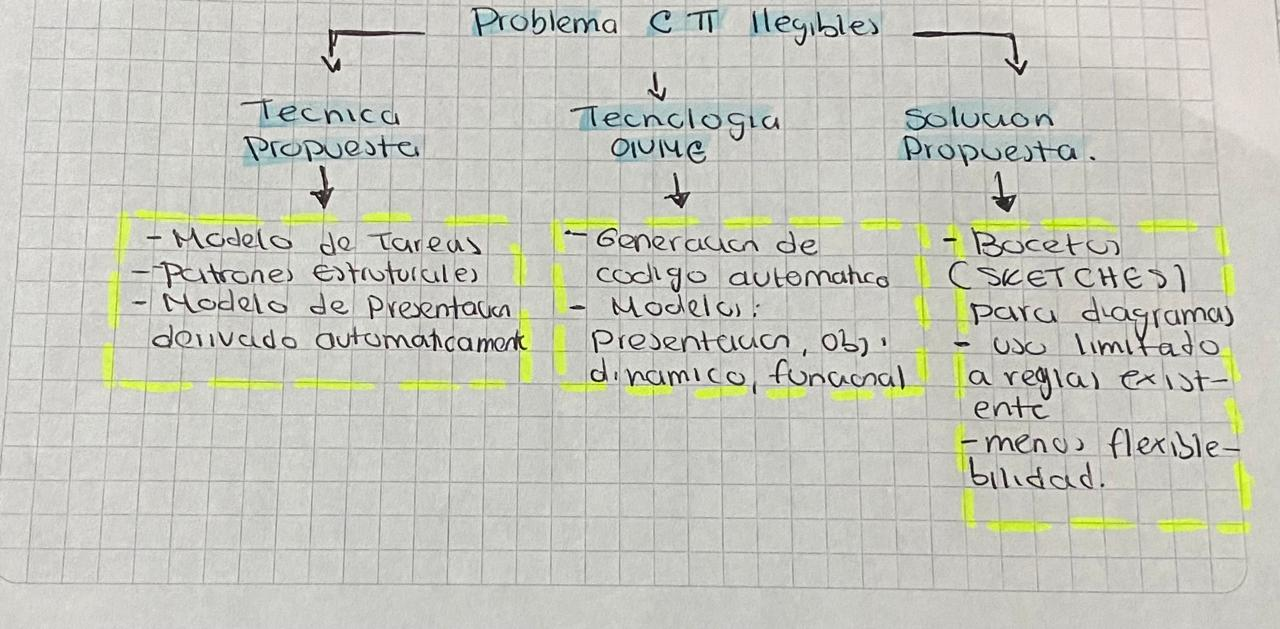 Problema CTT Ilegibles
Tecnica
Propuesta
- Modelo de Tareas
- Patrones estruturales
- Modelo de Presentacion
derivado automaticament
Tecnologia
- Generacion de
codigo automatico
- Modelos:
Presentacion, obj.
dinamico, funcional
Solucion
Propuesta.
- Bocetos
(SKETCHES)
para diagramas
- uso limitado
a reglas exist-
ente
- menos flexible-
bilidad.